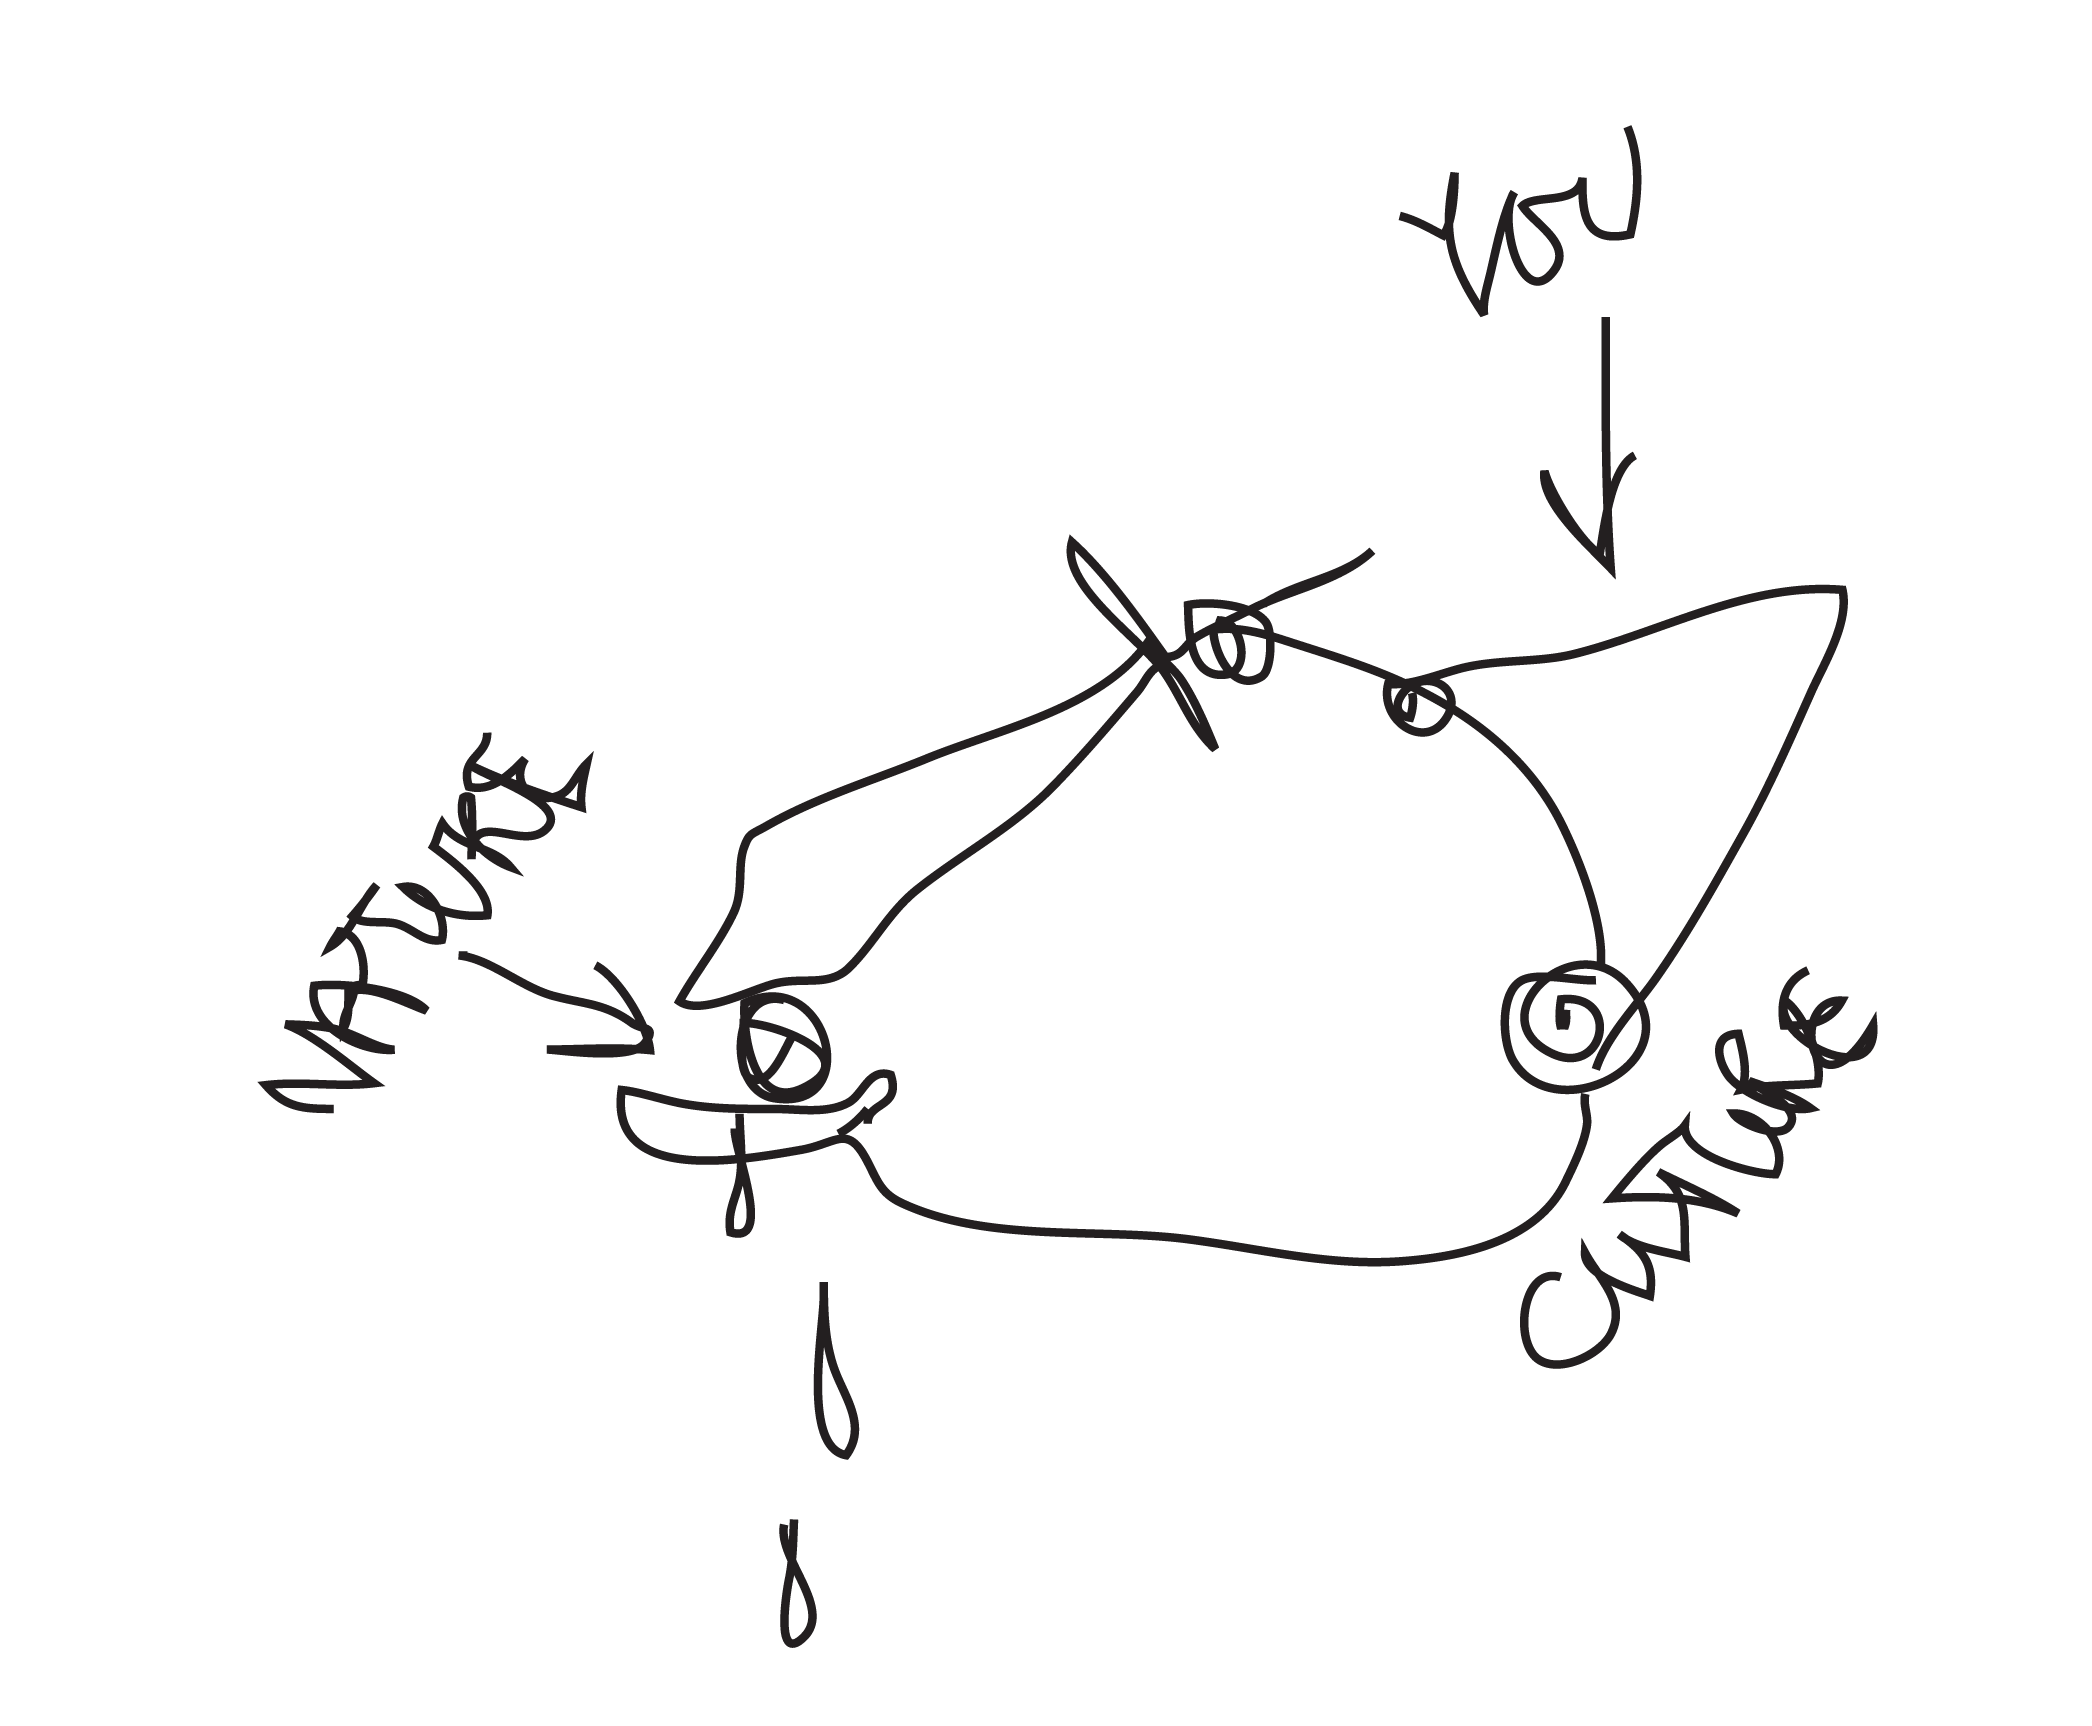 YOU
NATURE
CULTURE